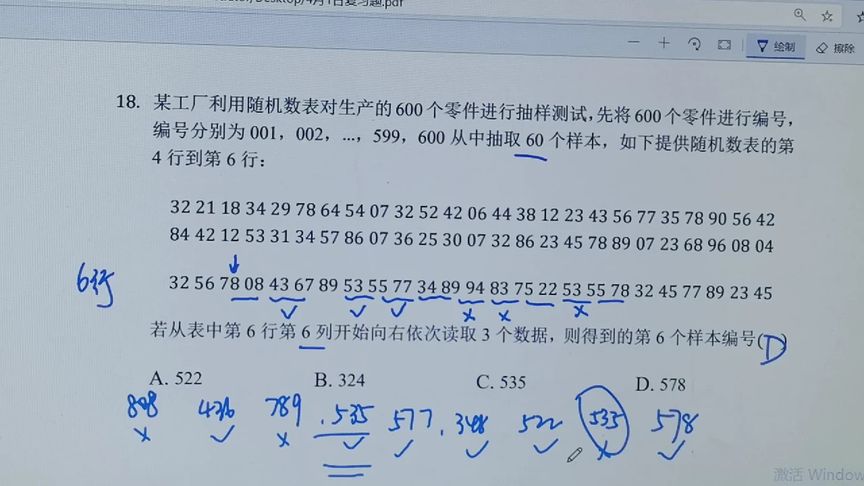 绘制 擦除
18. 某工厂利用随机数表对生产的600个零件进行抽样测试,先将600个零件进行编号,
编号分别为001, 002, ..., 599, 600 从中抽取60个样本, 如下提供随机数表的第
4行到第6行:
32 21 18 34 29 78 64 54 07 32 52 42 06 44 38 12 23 43 56 77 35 78 90 56 42
84 42 12 53 31 34 57 86 07 36 25 30 07 32 86 23 45 78 89 07 23 68 96 08 04
6行 32 56 78 08 43 67 89 53 55 77 34 89 94 83 75 22 53 55 78 32 45 77 89 23 45
若从表中第6行第6列开始向右依次读取3个数据, 则得到的第6个样本编号(D)
A. 522 B. 324 C. 535 D. 578
808 436 789 535 577 348 522 535 578
激活 Window